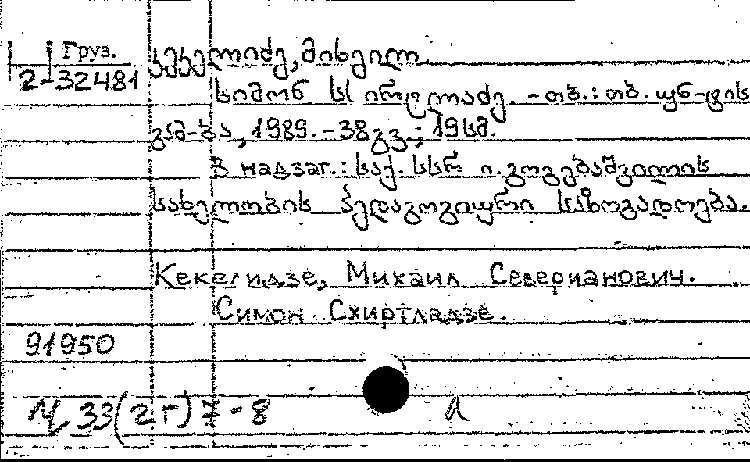 Груз.
2-32481
კეკელიძე, მიხეილ.
სიმონ სხირტლაძე. - თბ.: თბ. უნ-ტის
გამ-ბა, 1989. - 38გვ.; 19სმ.
В надзаг.: საქ. სსრ ი. გოგებაშვილის
სახელობის პედაგოგიური საზოგადოება.
Кекелидзе, Михаил Северианович.
Симон Схиртладзе.
91950
Ч 33(2Г)7-8